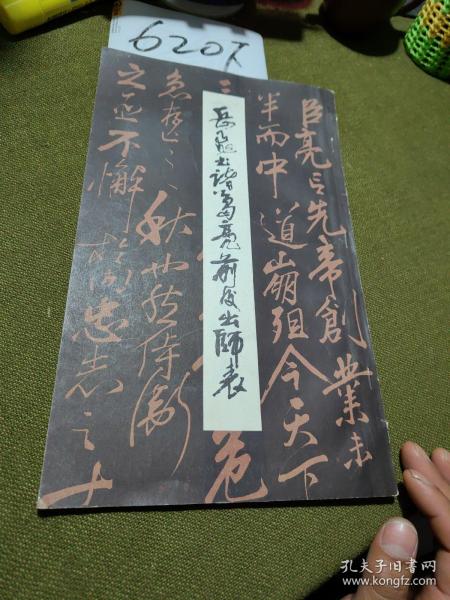 6207
岳飞书诸葛亮前后出师表
臣亮言先帝創業未
半而中道崩殂今天下
三
危
急存
秋也然侍衛
之臣不懈於内忠志之士
孔夫子旧书网
www.kongfz.com